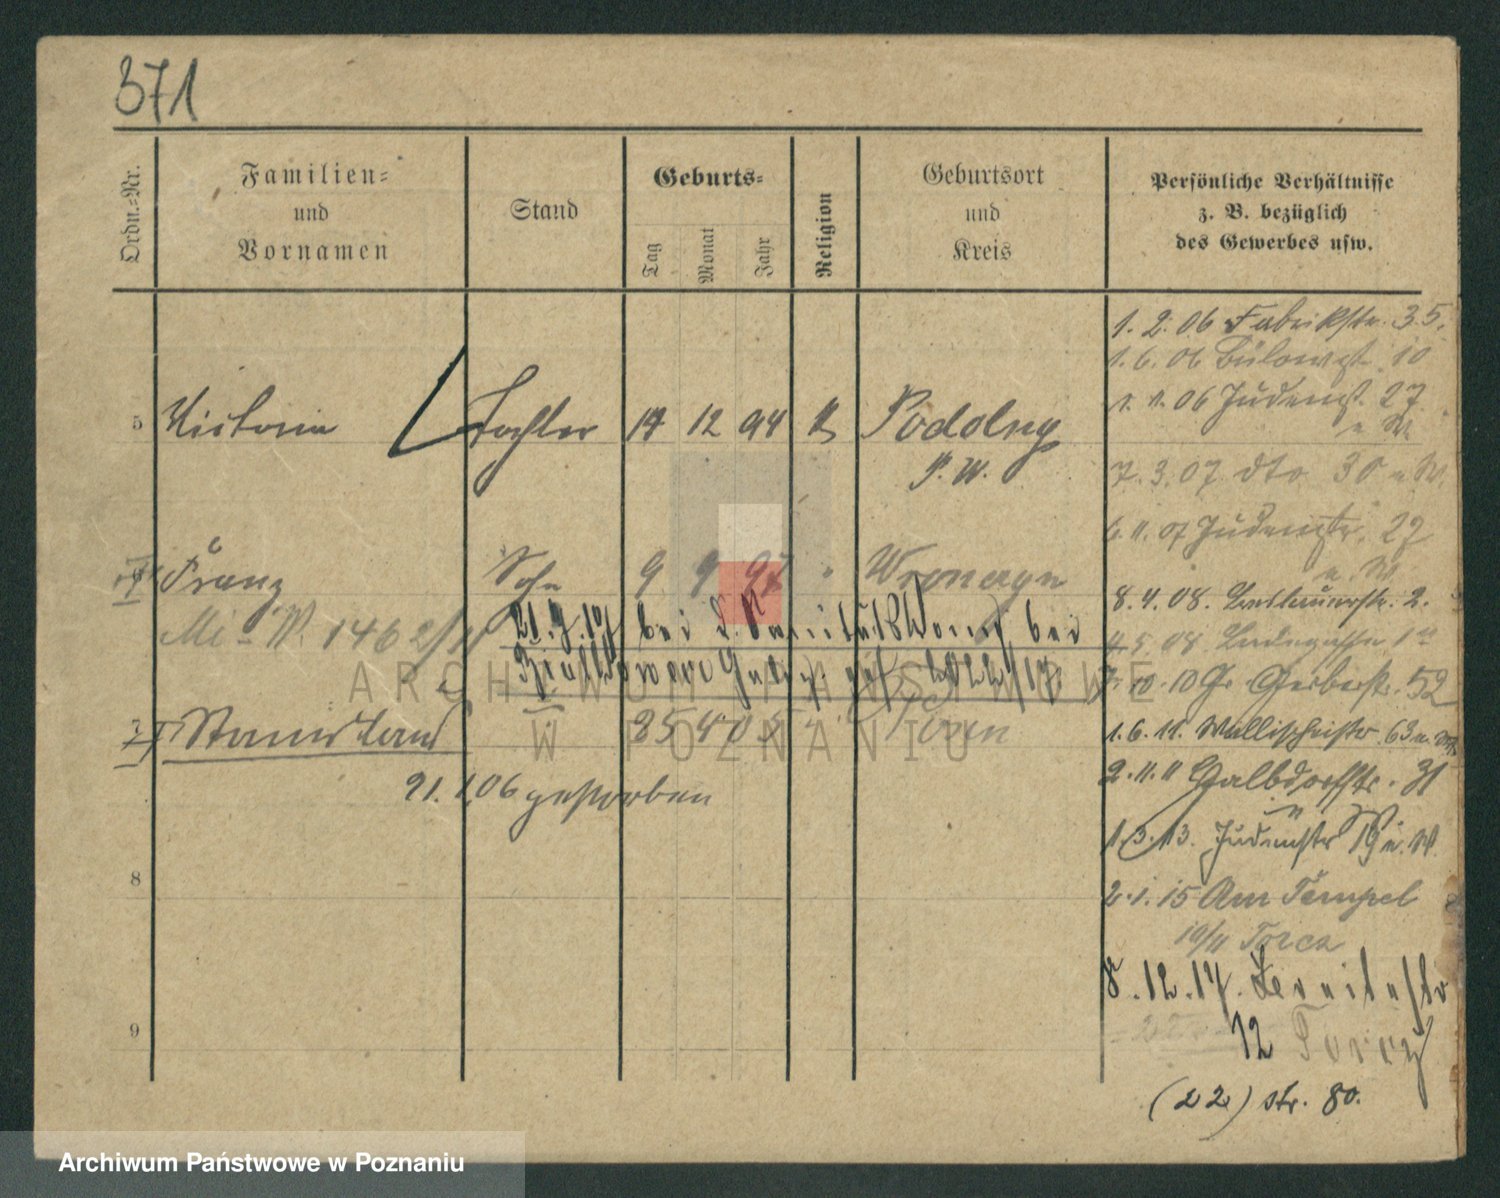 371
Ordn.-Nr.
Familien-
und
Vornamen
Stand
Geburts-
Tag Monat Jahr
Religion
Geburtsort
und
Kreis
Persönliche Verhältnisse
z. B. bezüglich
des Gewerbes usw.
5 Victoria Tochter 14 12 94 K Podolny
P. W.
6 Franz Sohn 9 9 97 " 
Mi - W. 1462/11
21. 7. 17 bei d. bei
gef. 2022/17.
7 Stanislaus 25 4 05 Posen
21. 1. 06 gestorben
8
9
1. 2. 06 Fabrikstr. 35.
1. 6. 06 Bülowst. 10
1. 11. 06 Judenst. 27
u W.
7. 3. 07 dto 30 u W.
6. 11. 07 Judenstr. 27
u W.
8. 4. 08. Breslauerstr. 2.
5. 08 Ludegasse 1
7. 10. 10 Gr. Gerberstr. 52
1. 6. 11. Wallischeistr. 63 u. W.
2. 11. 11 Halbdorfstr. 31
u W
1. 3. 13. Judenstr 19 u. W.
2. 1. 15 Am Tempel
10/11 Torcz
8. 12. 17.
12 Torcz
(22) str. 80.
ARCHIWUM PAŃSTWOWE
W POZNANIU
Archiwum Państwowe w Poznaniu